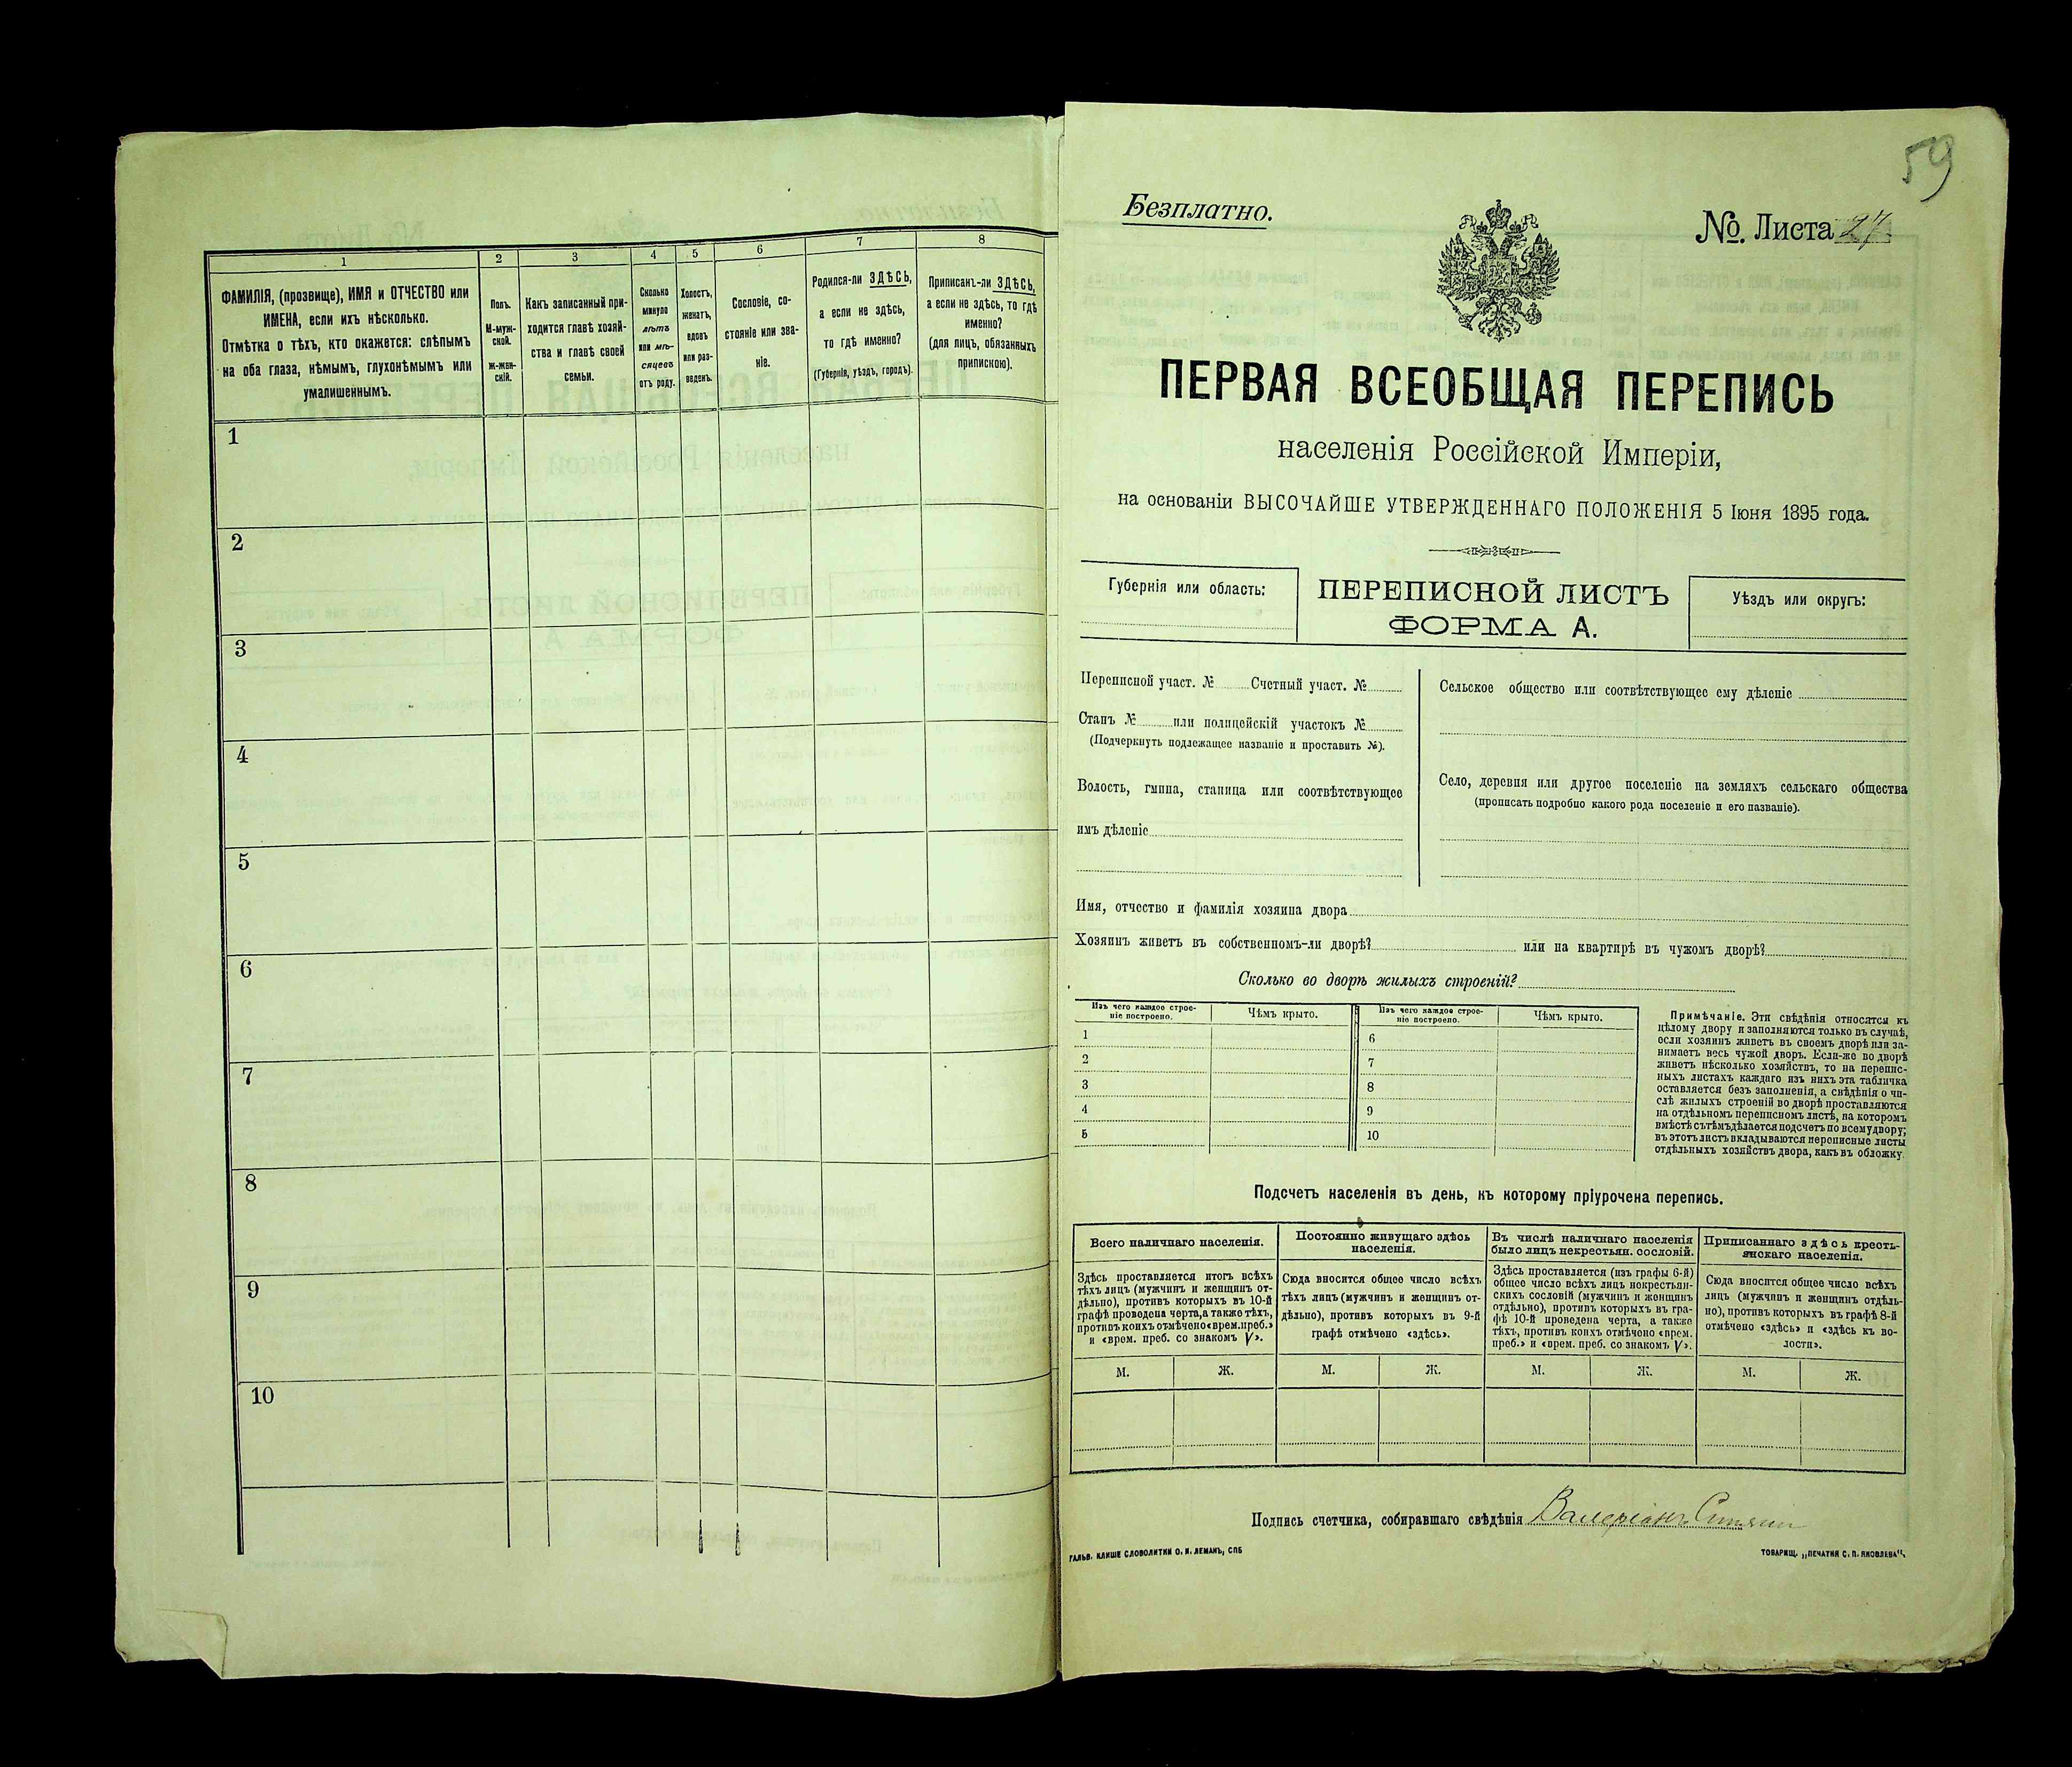 1
2
3
4
5
6
7
8
ФАМИЛІЯ, (прозвище), ИМЯ и ОТЧЕСТВО или
ИМЕНА, если ихъ нѣсколько.
Отмѣтка о тѣхъ, кто окажется: слѣпымъ
на оба глаза, нѣмымъ, глухонѣмымъ или
умалишеннымъ.
Полъ.
М-муж-
ской.
Ж-жен-
скій.
Какъ записанный при-
ходится главѣ хозяй-
ства и главѣ своей
семьи.
Сколько
минуло
лѣтъ
или мѣ-
сяцевъ
отъ роду.
Холостъ,
женатъ,
вдовъ
или раз-
веденъ.
Сословіе, со-
стояніе или зва-
ніе.
Родился-ли ЗДѢСЬ,
а если не здѣсь,
то гдѣ именно?
(Губернія, уѣздъ, городъ).
Приписанъ-ли ЗДѢСЬ,
а если не здѣсь, то гдѣ
именно?
(для лицъ, обязанныхъ
припискою).
1
2
3
4
5
6
7
8
9
10
59
Безплатно.
№. Листа 27
ПЕРВАЯ ВСЕОБЩАЯ ПЕРЕПИСЬ
населенія Россійской Имперіи,
на основаніи ВЫСОЧАЙШЕ УТВЕРЖДЕННАГО ПОЛОЖЕНІЯ 5 Іюня 1895 года.
Губернія или область:
ПЕРЕПИСНОЙ ЛИСТЪ
ФОРМА А.
Уѣздъ или округъ:
Переписной участ. № Счетный участ. №
Станъ № или полицейскій участокъ №
(Подчеркнуть подлежащее названіе и проставить №).
Волость, гмина, станица или соотвѣтствующее
имъ дѣленіе
Сельское общество или соотвѣтствующее ему дѣленіе
Село, деревня или другое поселеніе на земляхъ сельскаго общества
(прописать подробно какого рода поселеніе и его названіе).
Имя, отчество и фамилія хозяина двора
Хозяинъ живетъ въ собственномъ-ли дворѣ? или на квартирѣ въ чужомъ дворѣ?
Сколько во дворѣ жилыхъ строеній?
Изъ чего каждое строе-
ніе построено.
Чѣмъ крыто.
Изъ чего каждое строе-
ніе построено.
Чѣмъ крыто.
1
2
3
4
5
6
7
8
9
10
Примѣчаніе. Эти свѣдѣнія относятся къ
цѣлому двору и заполняются только въ случаѣ,
если хозяинъ живетъ въ своемъ дворѣ или за-
нимаетъ весь чужой дворъ. Если-же во дворѣ
живетъ нѣсколько хозяйствъ, то на перепис-
ныхъ листахъ каждаго изъ нихъ эта табличка
оставляется безъ заполненія, а свѣдѣнія о чи-
слѣ жилыхъ строеній во дворѣ проставляются
на отдѣльномъ переписномъ листѣ, на которомъ
вмѣстѣ съ тѣмъ дѣлается подсчетъ по всему двору;
въ этотъ листъ вкладываются переписные листы
отдѣльныхъ хозяйствъ двора, какъ въ обложку.
Подсчетъ населенія въ день, къ которому пріурочена перепись.
Всего наличнаго населенія.
Постоянно живущаго здѣсь
населенія.
Въ числѣ наличнаго населенія
было лицъ некрестьян. сословій.
Приписаннаго здѣсь кресть-
янскаго населенія.
Здѣсь проставляется итогъ всѣхъ
тѣхъ лицъ (мужчинъ и женщинъ от-
дѣльно), противъ которыхъ въ 10-й
графѣ проведена черта, а также тѣхъ,
противъ коихъ отмѣчено «врем. преб.»
и «врем. преб. со знакомъ V».
Сюда вносится общее число всѣхъ
тѣхъ лицъ (мужчинъ и женщинъ от-
дѣльно), противъ которыхъ въ 9-й
графѣ отмѣчено «здѣсь».
Здѣсь проставляется (изъ графы 6-й)
общее число всѣхъ лицъ некрестьян-
скихъ сословій (мужчинъ и женщинъ
отдѣльно), противъ которыхъ въ гра-
фѣ 10-й проведена черта, а также
тѣхъ, противъ коихъ отмѣчено «врем.
преб.» и «врем. преб. со знакомъ V».
Сюда вносится общее число всѣхъ
лицъ (мужчинъ и женщинъ отдѣль-
но), противъ которыхъ въ графѣ 8-й
отмѣчено «здѣсь» и «здѣсь къ во-
лости».
М. Ж. М. Ж. М. Ж. М. Ж.
Подпись счетчика, собиравшаго свѣдѣнія Валеріанъ
ГАЛЬВ. КЛИШЕ СЛОВОЛИТНИ О. И. ЛЕМАНЪ, СПБ
ТОВАРИЩ. „ПЕЧАТНЯ С. П. ЯКОВЛЕВА".